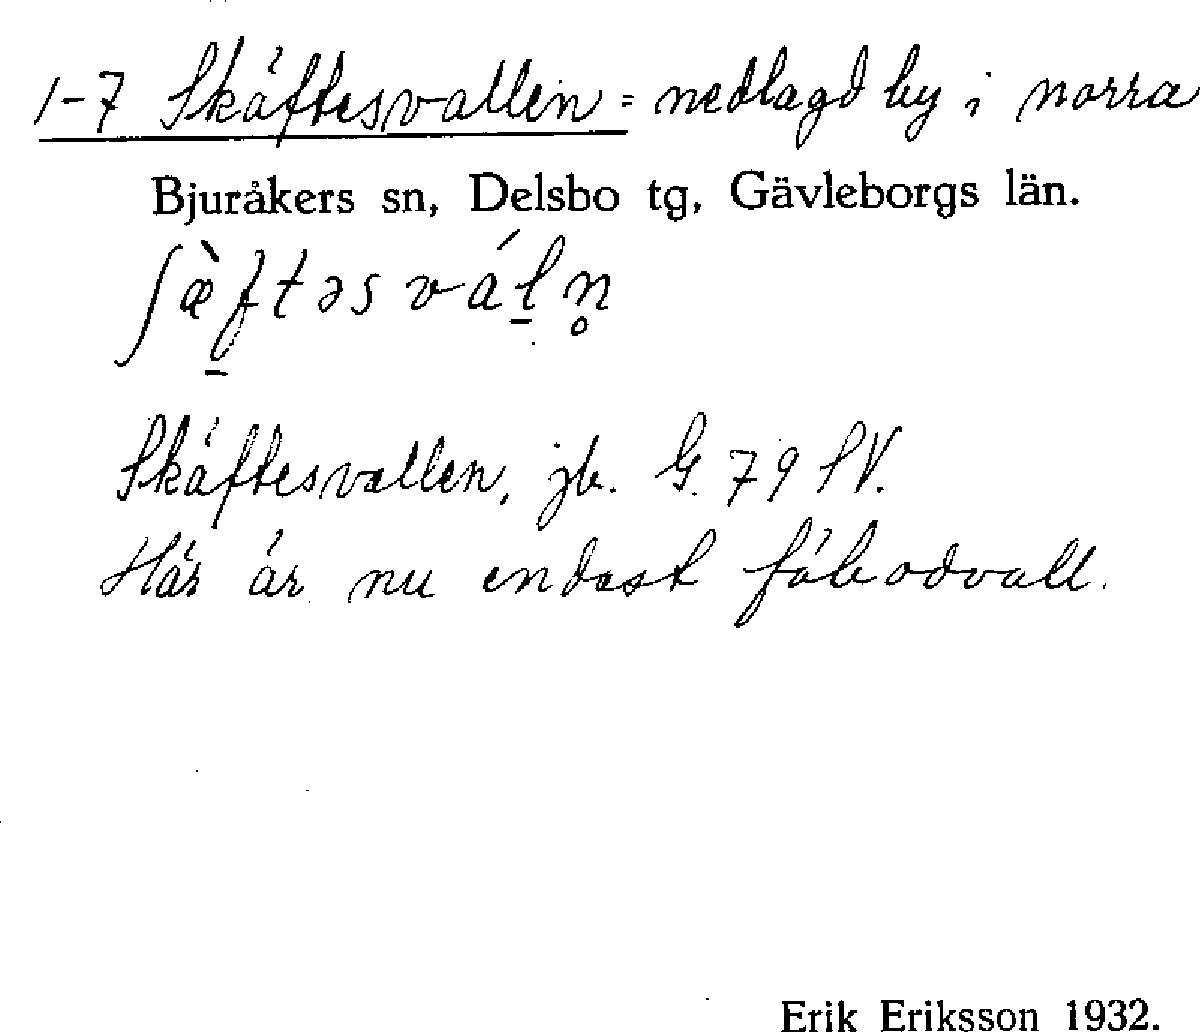 1-7 Skäftesvallen = nedlagd by i norra
Bjuråkers sn, Delsbo tg, Gävleborgs län.
ʃæ̀f̲təsvál̲n̥
Skäftesvallen, jb. G. 79 SV.
Här är nu endast fäbodvall.
Erik Eriksson 1932.